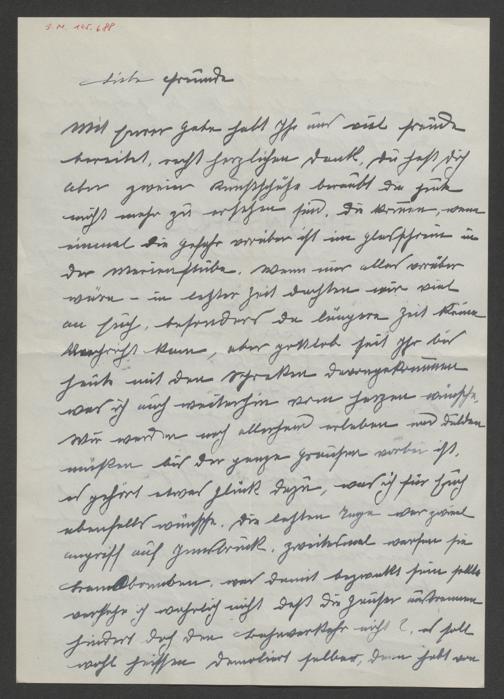 S.M. 195.688
Liebe Freunde
Mit Eurer Gabe habt Ihr uns viel Freude
bereitet, recht herzlichen Dank, Du hast Dich
aber zweier Kunstschätze beraubt die heute
nicht mehr zu ersetzen sind. Die kommen, wenn
einmal die Gefahr vorüber ist im Glasschrein in
der Marienstube. Wenn nur alles vorüber
wäre – in letzter Zeit dachten wir viel
an Euch, besonders da längere Zeit keine
Nachricht kam, aber gottlob seit Ihr bis
heute mit den Schreken davongekommen
was ich auch weiterhin vom Herzen wünsche.
Wir werden noch allerhand erleben und dulden
müssen bis der ganze Grausen vorbei ist,
es gehört etwas Glück dazu, was ich für Euch
ebenfalls wünsche. Die letzten Tage war zweimal
Angriff auf Innsbruck. Zweitesmal warfen sie
Brandbomben, was damit bezwekt sein sollte
verstehe ich wahrlich nicht daß die Häuser ausbrennen
hindert doch den Bahnverkehr nicht?, es soll
wohl heissen demoliert selber, dann habt von